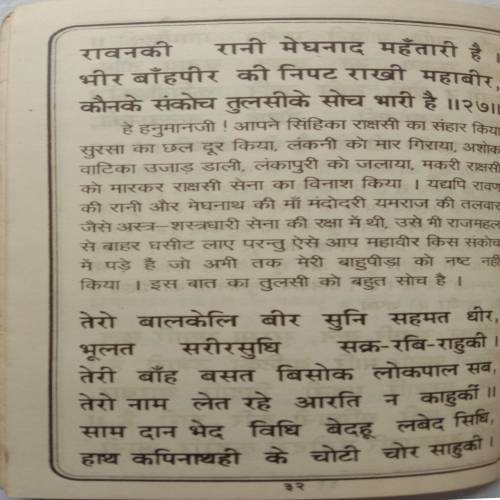 रावनकी रानी मेघनाद महँतारी है ।
भीर बाँहपीर की निपट राखी महाबीर,
कौनके संकोच तुलसीके सोच भारी है ॥२७॥
हे हनुमानजी ! आपने सिंहिका राक्षसी का संहार किया
सुरसा का छल दूर किया, लंकनी को मार गिराया, अशोक
वाटिका उजाड़ डाली, लंकापुरी को जलाया, मकरी राक्षसी
को मारकर राक्षसी सेना का विनाश किया । यद्यपि रावण
की रानी और मेघनाथ की माँ मंदोदरी यमराज की तलवार
जैसे अस्त्र-शस्त्रधारी सेना की रक्षा में थी, उसे भी राजमहल
से बाहर घसीट लाए परन्तु ऐसे आप महावीर किस संकोच
में पड़े हैं जो अभी तक मेरी बाहुपीड़ा को नष्ट नहीं
किया । इस बात का तुलसी को बहुत सोच है ।
तेरो बालकेलि बीर सुनि सहमत धीर,
भूलत सरीरसुधि सक्र-रबि-राहुकी ।
तेरी बाँह बसत बिसोक लोकपाल सब,
तेरो नाम लेत रहे आरति न काहुकी ॥
साम दान भेद विधि बेदहू लबेद सिधि,
हाथ कपिनाथही के चोटी चोर साहुकी ।
३२